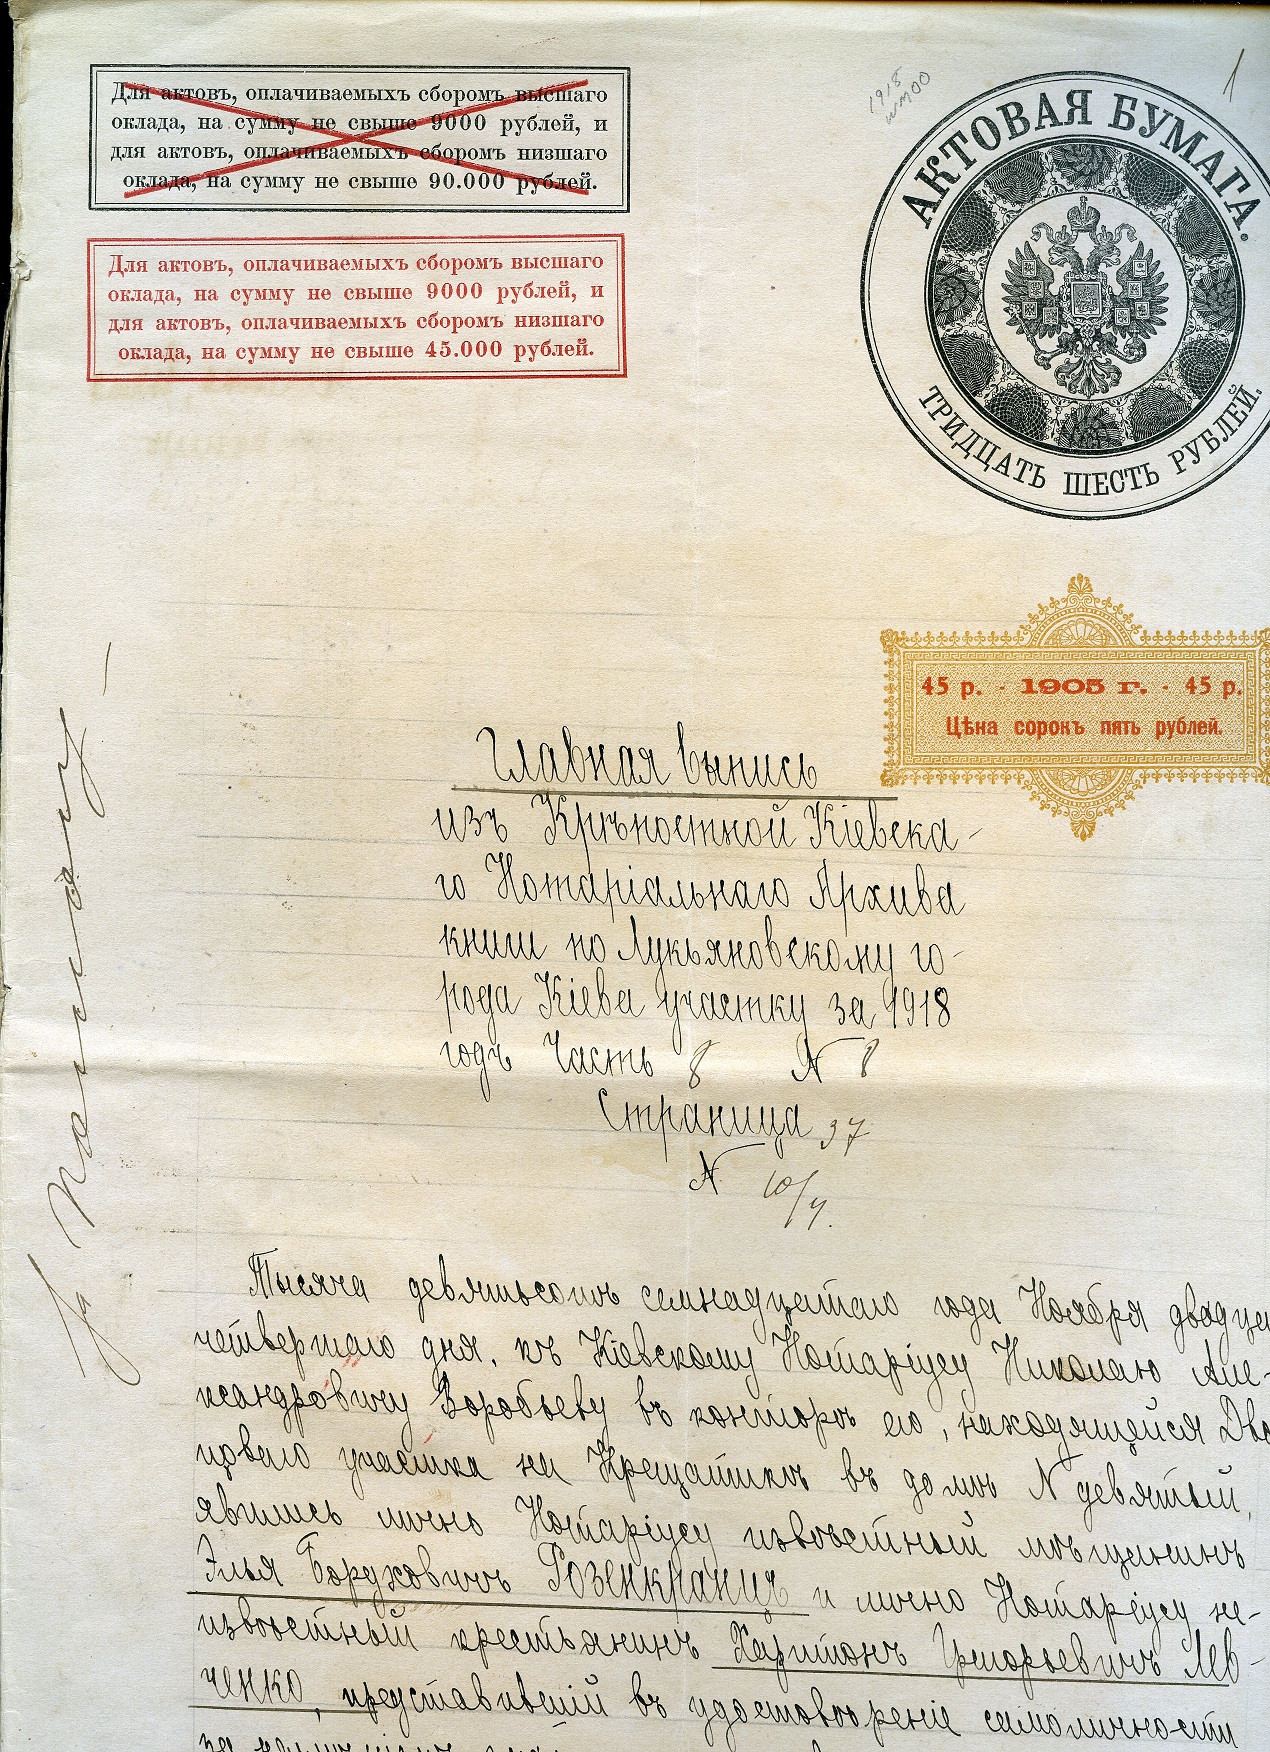 Для актовъ, оплачиваемыхъ сборомъ высшаго
оклада, на сумму не свыше 9000 рублей, и
для актовъ, оплачиваемыхъ сборомъ низшаго
оклада, на сумму не свыше 90.000 рублей.
Для актовъ, оплачиваемыхъ сборомъ высшаго
оклада, на сумму не свыше 9000 рублей, и
для актовъ, оплачиваемыхъ сборомъ низшаго
оклада, на сумму не свыше 45.000 рублей.
1918
1
АКТОВАЯ БУМАГА.
ТРИДЦАТЬ ШЕСТЬ РУБЛЕЙ.
45 р. - 1905 г. - 45 р.
Цѣна сорокъ пять рублей.
Главная выпись
изъ Крѣпостной Кіевска-
го Нотаріальнаго Архива
книги по Лукьяновскому го-
рода Кіева участку за 1918
годъ Часть 8 N 8
Страница 37
N 10/4.
Тысяча девятьсотъ семнадцатаго года Ноября двадца
четвертаго дня, къ Кіевскому Нотаріусу Николаю Але-
ксандровичу Воробьеву въ конторѣ его, находящейся Дво
цоваго участка на Крещатикѣ въ домѣ N девятый,
явились лично Нотаріусу извѣстный мѣщанинъ
Элья Боруховичъ Розенкранцъ и лично Нотаріусу не-
извѣстный крестьянинъ Харитонъ Григорьевичъ Лев-
ченко, представившій въ удостовѣреніе самоличности